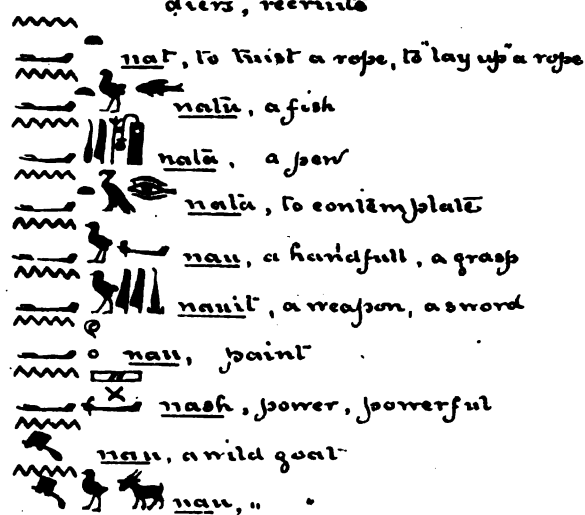 diers, recruits
nat, to twist a rope, to "lay up" a rope
natū, a fish
natā, a pen
natā, to contemplate
nau, a handfull, a grasp
nauit, a weapon, a sword
nau, paint
nash, power, powerful
nau, a wild goat
nau, "